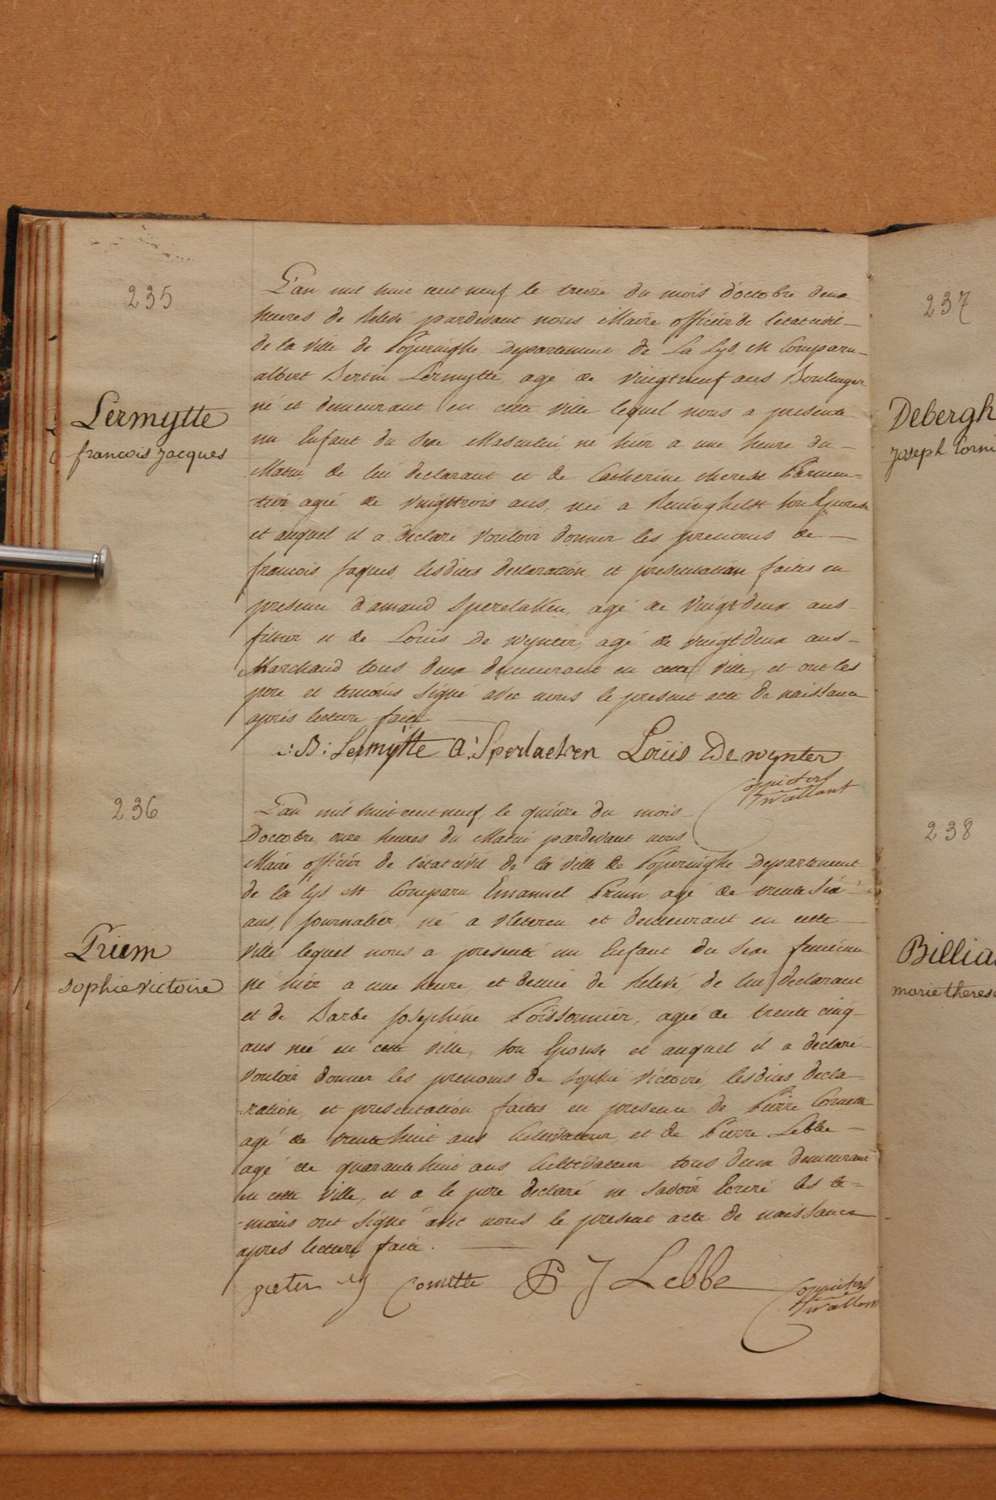 235
Lermytte
francois jacques
L'an mil huit cent neuf le treize du mois d'octobre deux
heures de relevé pardevant nous Maire officier de l'etat civil
de la Ville de Poperinghe Departement de La Lys, est Comparu
albert Bertin Lermytte agé de vingtneuf ans Boulanger
né et demeurant en cette ville lequel nous a presenté
un Enfant du sexe Masculin né hier a une heure du
Matin de lui declarant et de Catherine therese Parmen-
tier agée de vingttrois ans, née a Reninghelst son Epouse
et auquel il a declaré vouloir donner les prenoms de
francois Jaques, lesdites declaration et presentation faites en
presence d'amand Sperlaeken, agé de vingtdeux ans
et de Louis De wynter, agé de vingtdeux ans
Marchand tous deux demeurant en cette ville, et ont les
pere et temoins signé avec nous le present acte de naissance
après lecture faite
: B : Lermytte A : Sperlaeken Louis De wynter
236
Priem
sophie victoire
L'an mil huit cent neuf le quinze du mois
D'octobre onze heures du Matin pardevant nous
Maire officier de l'etat civil de la ville de Poperinghe Departement
de la Lys est Comparu Emanuel Priem agé de trente six
ans, Journalier, né a vleteren et demeurant en cette
ville lequel nous a presenté un Enfant du sexe feminin
né hier a une heure et demie de relevé de lui declarant
et de Barbe Josephine Poissonnier, agée de trente cinq
ans née en cette ville, son Epouse et auquel il a declaré
vouloir donner les prenoms de Sophie Victoire, lesdites decla-
ration et presentation faites en presence de Pierre
agé de trente huit ans Cultivateur et de Pierre Lebbe
agé de quarante huit ans Cultivateur tous deux demeurant
en cette ville, et a le pere declaré ne savoir Ecrire les te-
moins ont signé avec nous le present acte de naissance
apres lecture faite.
pieter Comitte P J Lebbe
237
Debergh
Joseph
238
Billia
marie theres